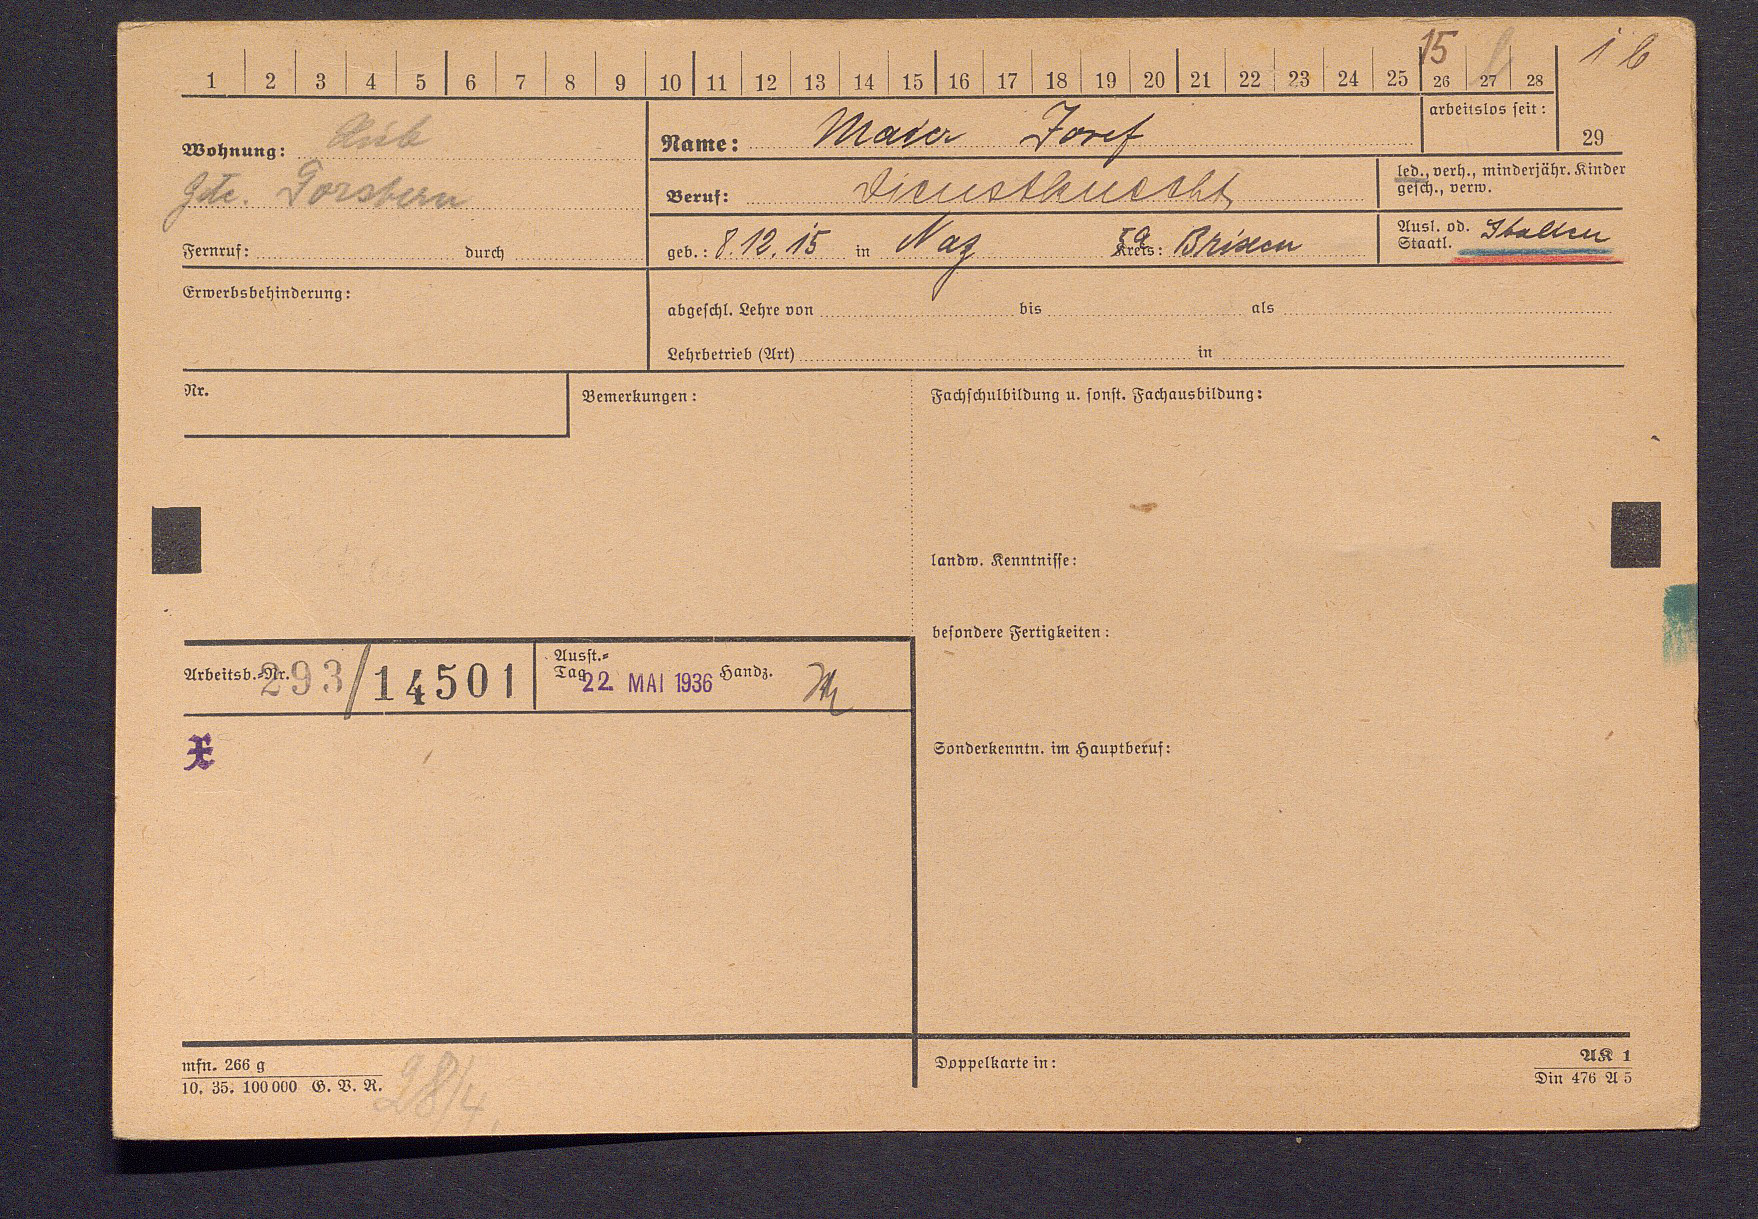 1 2 3 4 5 6 7 8 9 10 11 12 13 14 15 16 17 18 19 20 21 22 23 24 25 26 27 28
15
1 b
arbeitslos seit:
29
Wohnung:
Gde.
Fernruf: durch
Name: Maier Josef
Beruf: Dienstknecht
led., verh., minderjähr. Kinder
gesch., verw.
geb.: 8.12.15 in Naz Kreis: Brixen
Ausl. od.
Staatl. Italien
Erwerbsbehinderung:
abgeschl. Lehre von bis als
Lehrbetrieb (Art) in
Nr.
Bemerkungen:
Fachschulbildung u. sonst. Fachausbildung:
landw. Kenntnisse:
besondere Fertigkeiten:
Arbeitsb.-Nr. 293/14501
Ausst.-
Tag 22. MAI 1936 Handz.
Sonderkenntn. im Hauptberuf:
mfn. 266 g
10. 35. 100 000 G. V. R.
28/4.
Doppelkarte in:
AK 1
Din 476 A 5